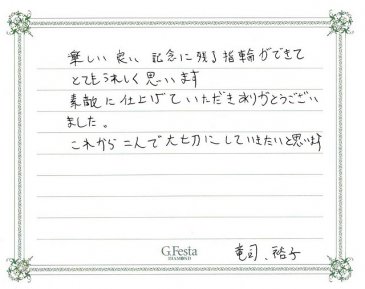 楽しい良い記念に残る指輪ができて
とてもうれしく思います
素敵に仕上げていただきありがとうござい
ました。
これから二人で大切にしていきたいと思います
G.Festa
DIAMOND
竜司、裕子